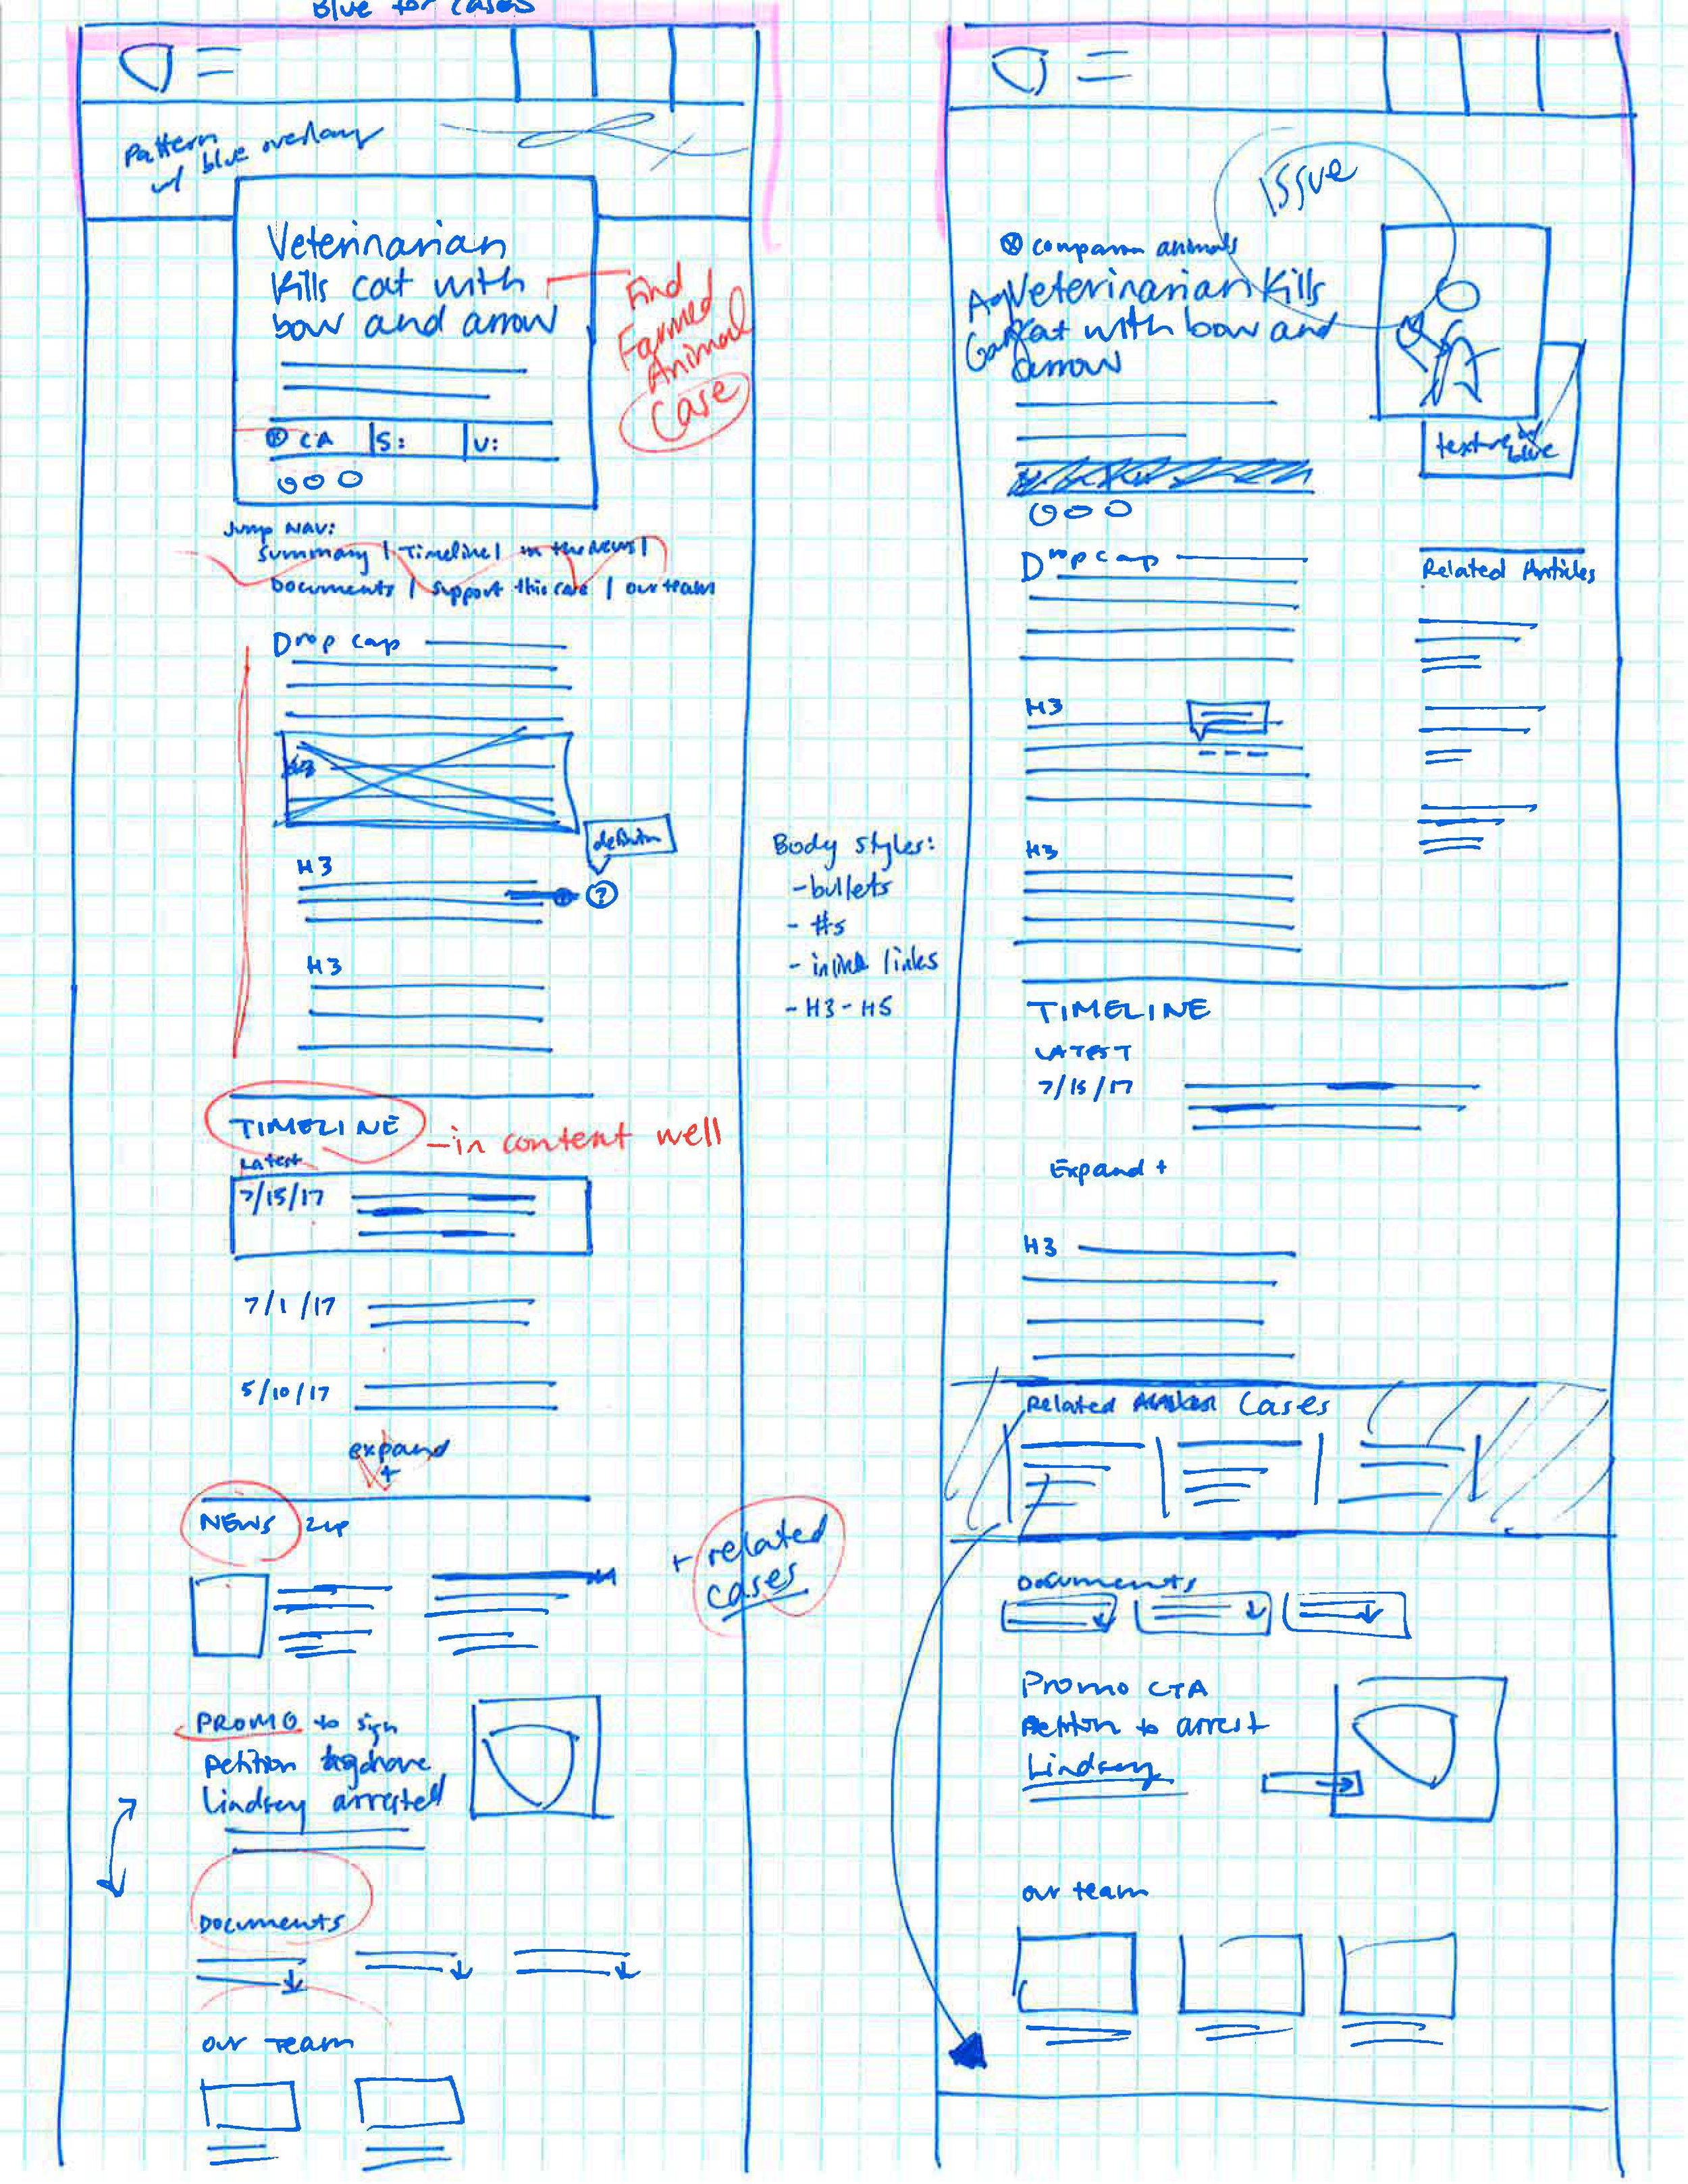 Blue for cases
Pattern
w/ blue overlay
Veterinarian
Kills cat with
bow and arrow
Find
Farmed
Animal
Case
CA | S: | V:
Jump Nav:
Summary | Timeline | in the News |
Documents | Support this case | our team
Drop cap
H3
definition
H3
?
H3
TIMELINE
- in content well
Latest
7/15/17
7/1/17
5/10/17
expand
+
NEWS 2up
+ related
cases
PROMO to sign
Petition
Lindsey arrested
Documents
our team
Body Styles:
- bullets
- #s
- inline links
- H3-H5
Issue
companion animals
Veterinarian Kills
Cat with bow and
arrow
texture w/
blue
Drop cap
Related Articles
H3
H3
TIMELINE
LATEST
7/15/17
Expand +
H3
Related Cases
Documents
Promo CTA
Petition to arrest
Lindsey
our team